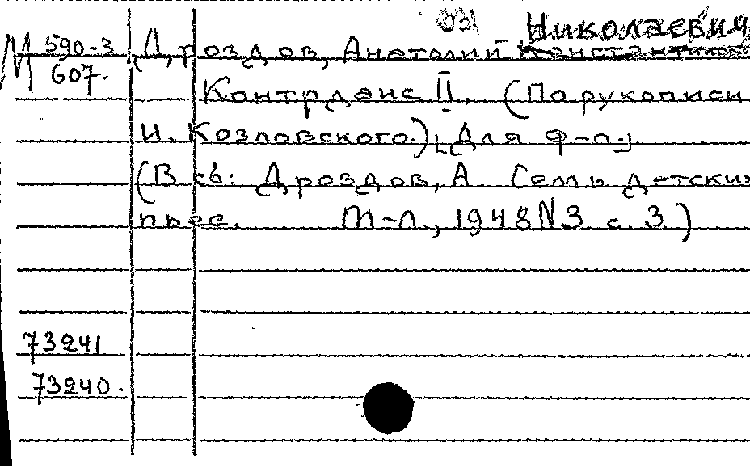 Николаевич
М 590-3 Дроздов, Анатолий Константинов
607. Контрданс II. (По рукописи
И. Козловского.) [Для ф-п.]
(В сб: Дроздов, А. Семь детских
пьес. М-Л., 1948 N3 с. 3.)
73241
73240.